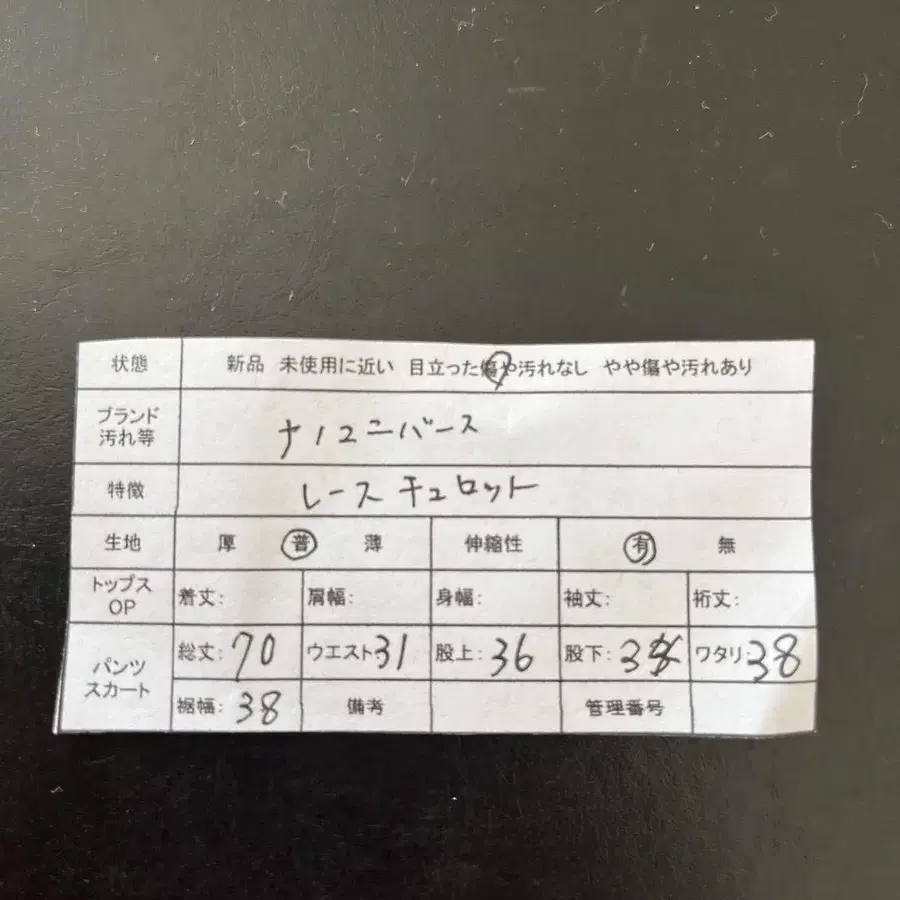 状態 新品 未使用に近い 目立った傷や汚れなし やや傷や汚れあり
ブランド
汚れ等
ナノユニバース
特徴 レースキュロット
生地 厚 普 薄 伸縮性 有 無
トップス
OP
着丈: 肩幅: 身幅: 袖丈: 裄丈:
パンツ
スカート
総丈: 70 ウエスト: 31 股上: 36 股下: ワタリ: 38
裾幅: 38 備考 管理番号